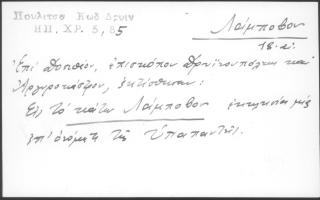 Πουλίτσα Κωδ Δρυιν
ΗΠ. ΧΡ. 5, 85
Λάμποβον
18.α.
Ἐπί Δοσιθέου, ἐπισκόπου Δρυϊνουπόλεως καί
Ἀργυροκάστρου, ἐκτίσθησαν:
Εἰς τό κάτω Λάμποβον ἐκκλησία μία
ἐπ' ὀνόματι τῆς Ὑπαπαντῆς.